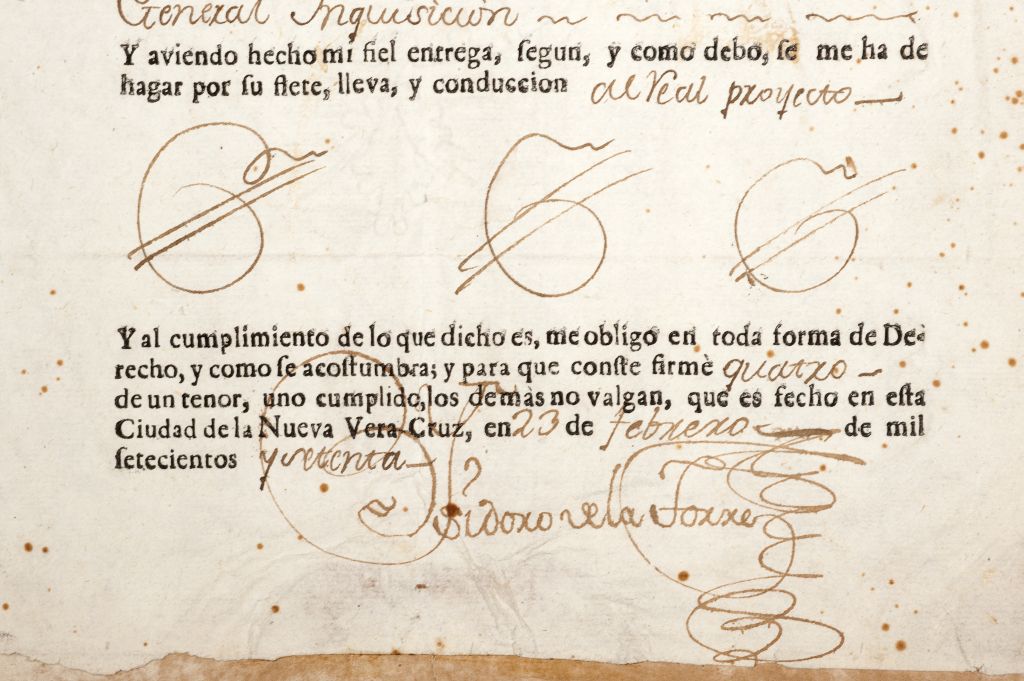 General Inquisicion
Y aviendo hecho mi fiel entrega, ſegun, y como debo, ſe me ha de
hagar por ſu flete, lleva, y conduccion al Real proyecto
Y al cumplimiento de lo que dicho es, me obligo en toda forma de De-
recho, y como ſe acoſtumbra; y para que conſte firmè quatro
de un tenor, uno cumplido, los demàs no valgan, que es fecho en eſta
Ciudad de la Nueva Vera-Cruz, en 23 de febrero de mil
ſetecientos y setenta
Isidoro de la Torre